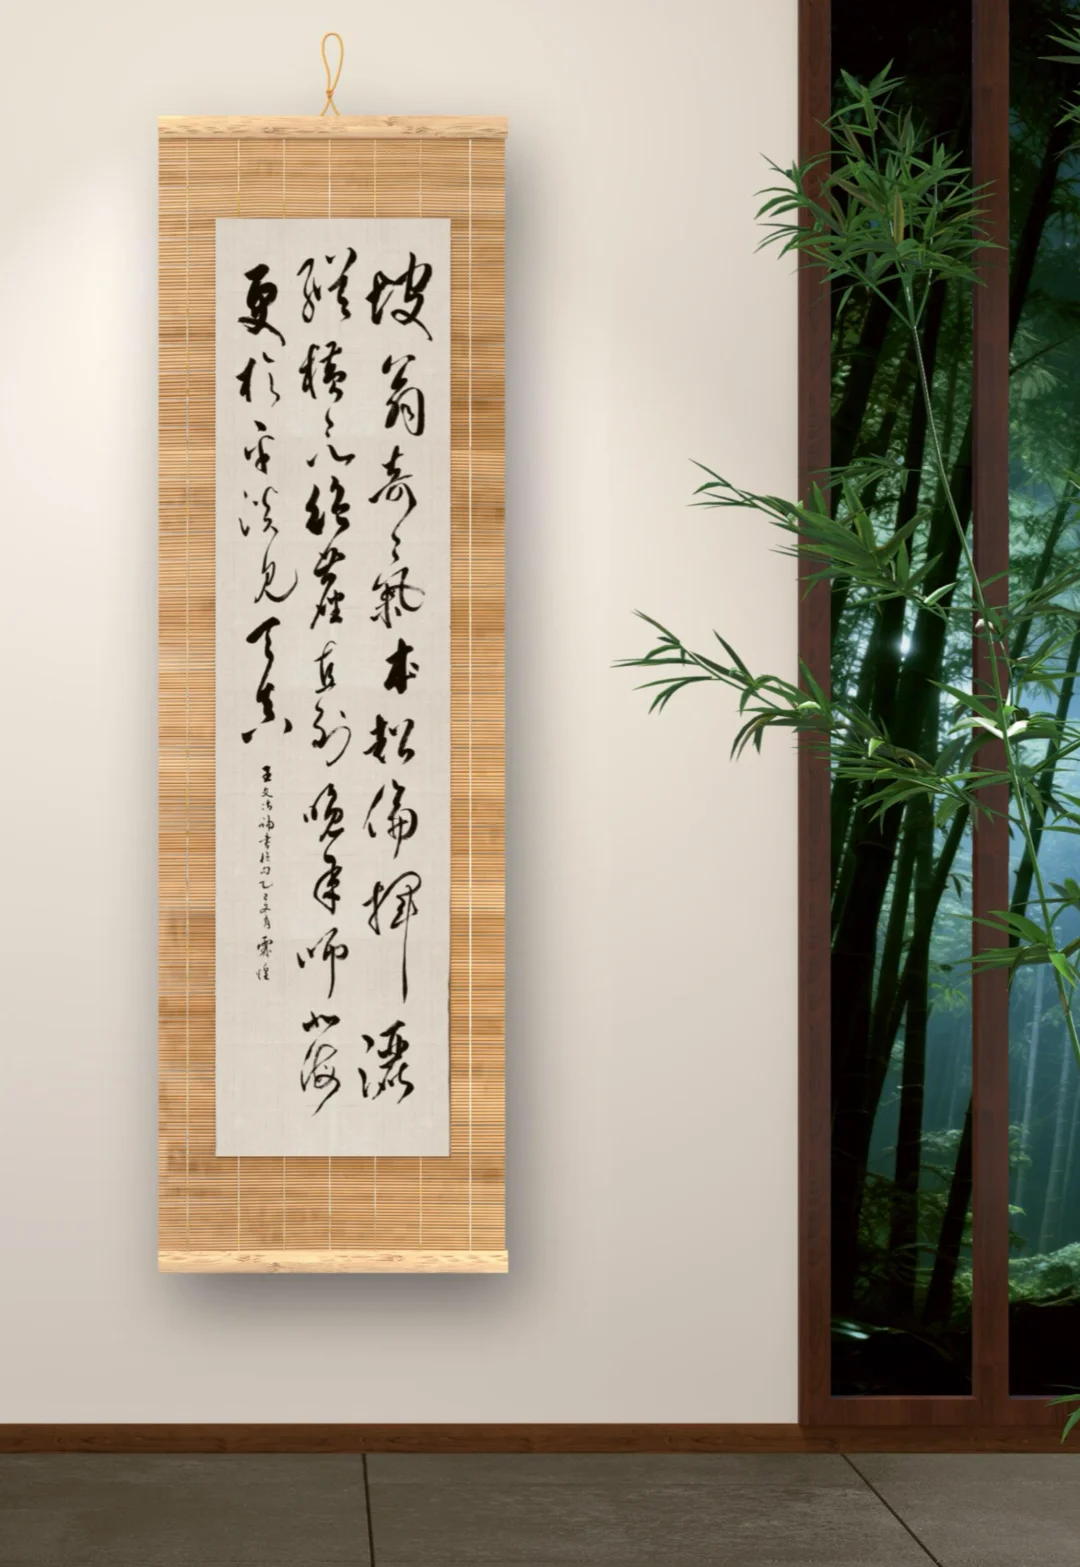 坡翁奇氣本超倫揮灑
縱橫欲絕塵直到晚年師北海
更於平淡見天真
王文治論書絕句乙巳月煌